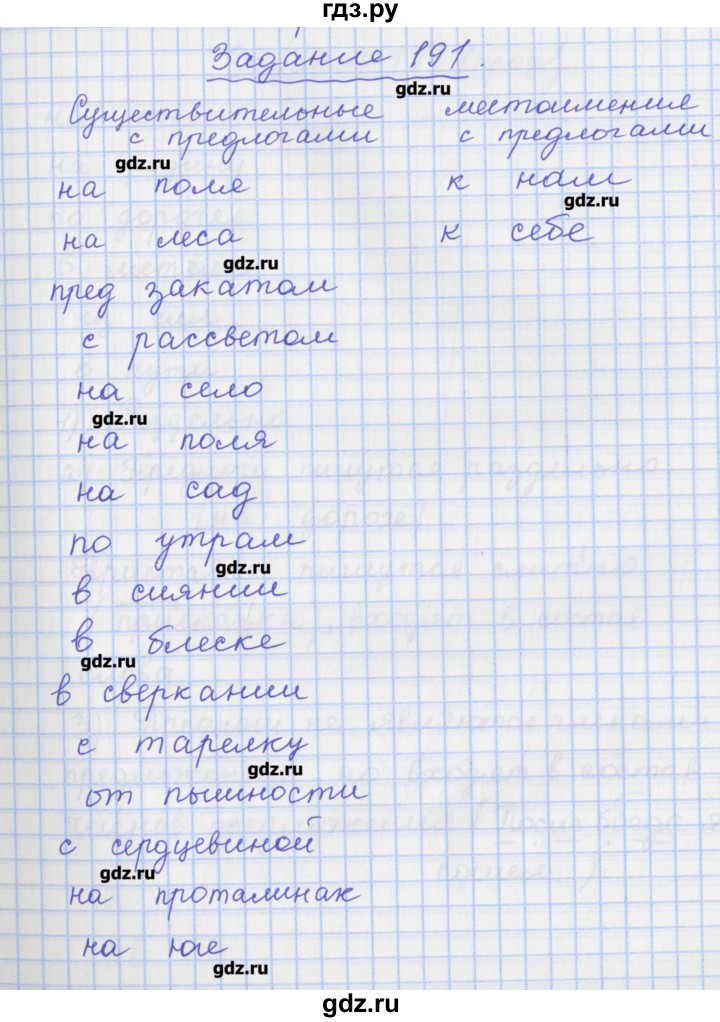 гдз.ру
Задание 191.
gdz.ru
Существительные местоимения
с предлогами с предлогами
gdz.ru
на поле к нам
gdz.ru
на леса к себе
gdz.ru
пред закатом
с рассветом
на село
gdz.ru
на поля
на сад
по утрам
gdz.ru
в сиянии
в блеске
gdz.ru
в сверкании
с тарелку
gdz.ru
от пышности
с сердцевиной
gdz.ru
на проталинах
на юге
gdz.ru
gdz.ru